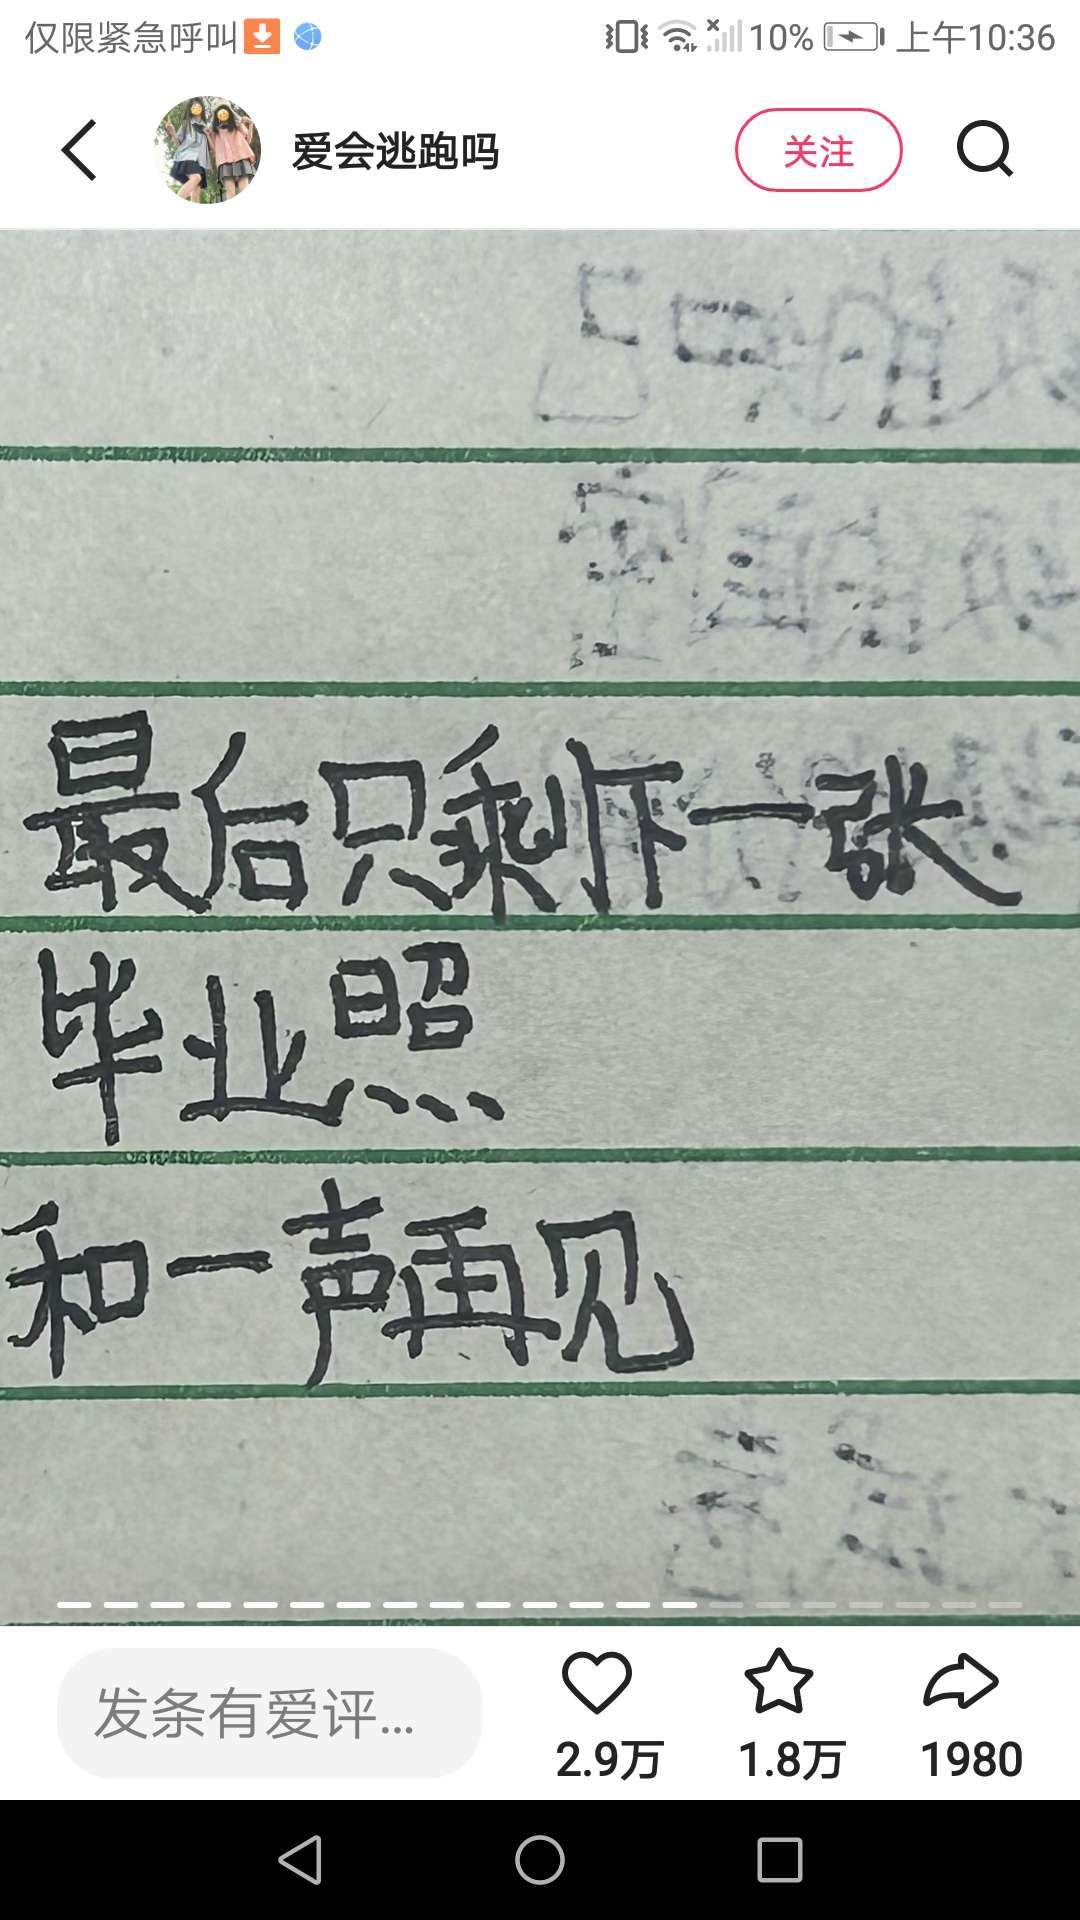 仅限紧急呼叫 10% 上午10:36
爱会逃跑吗 关注
最后只剩下一张
毕业照
和一声再见
发条有爱评...
2.9万 1.8万 1980